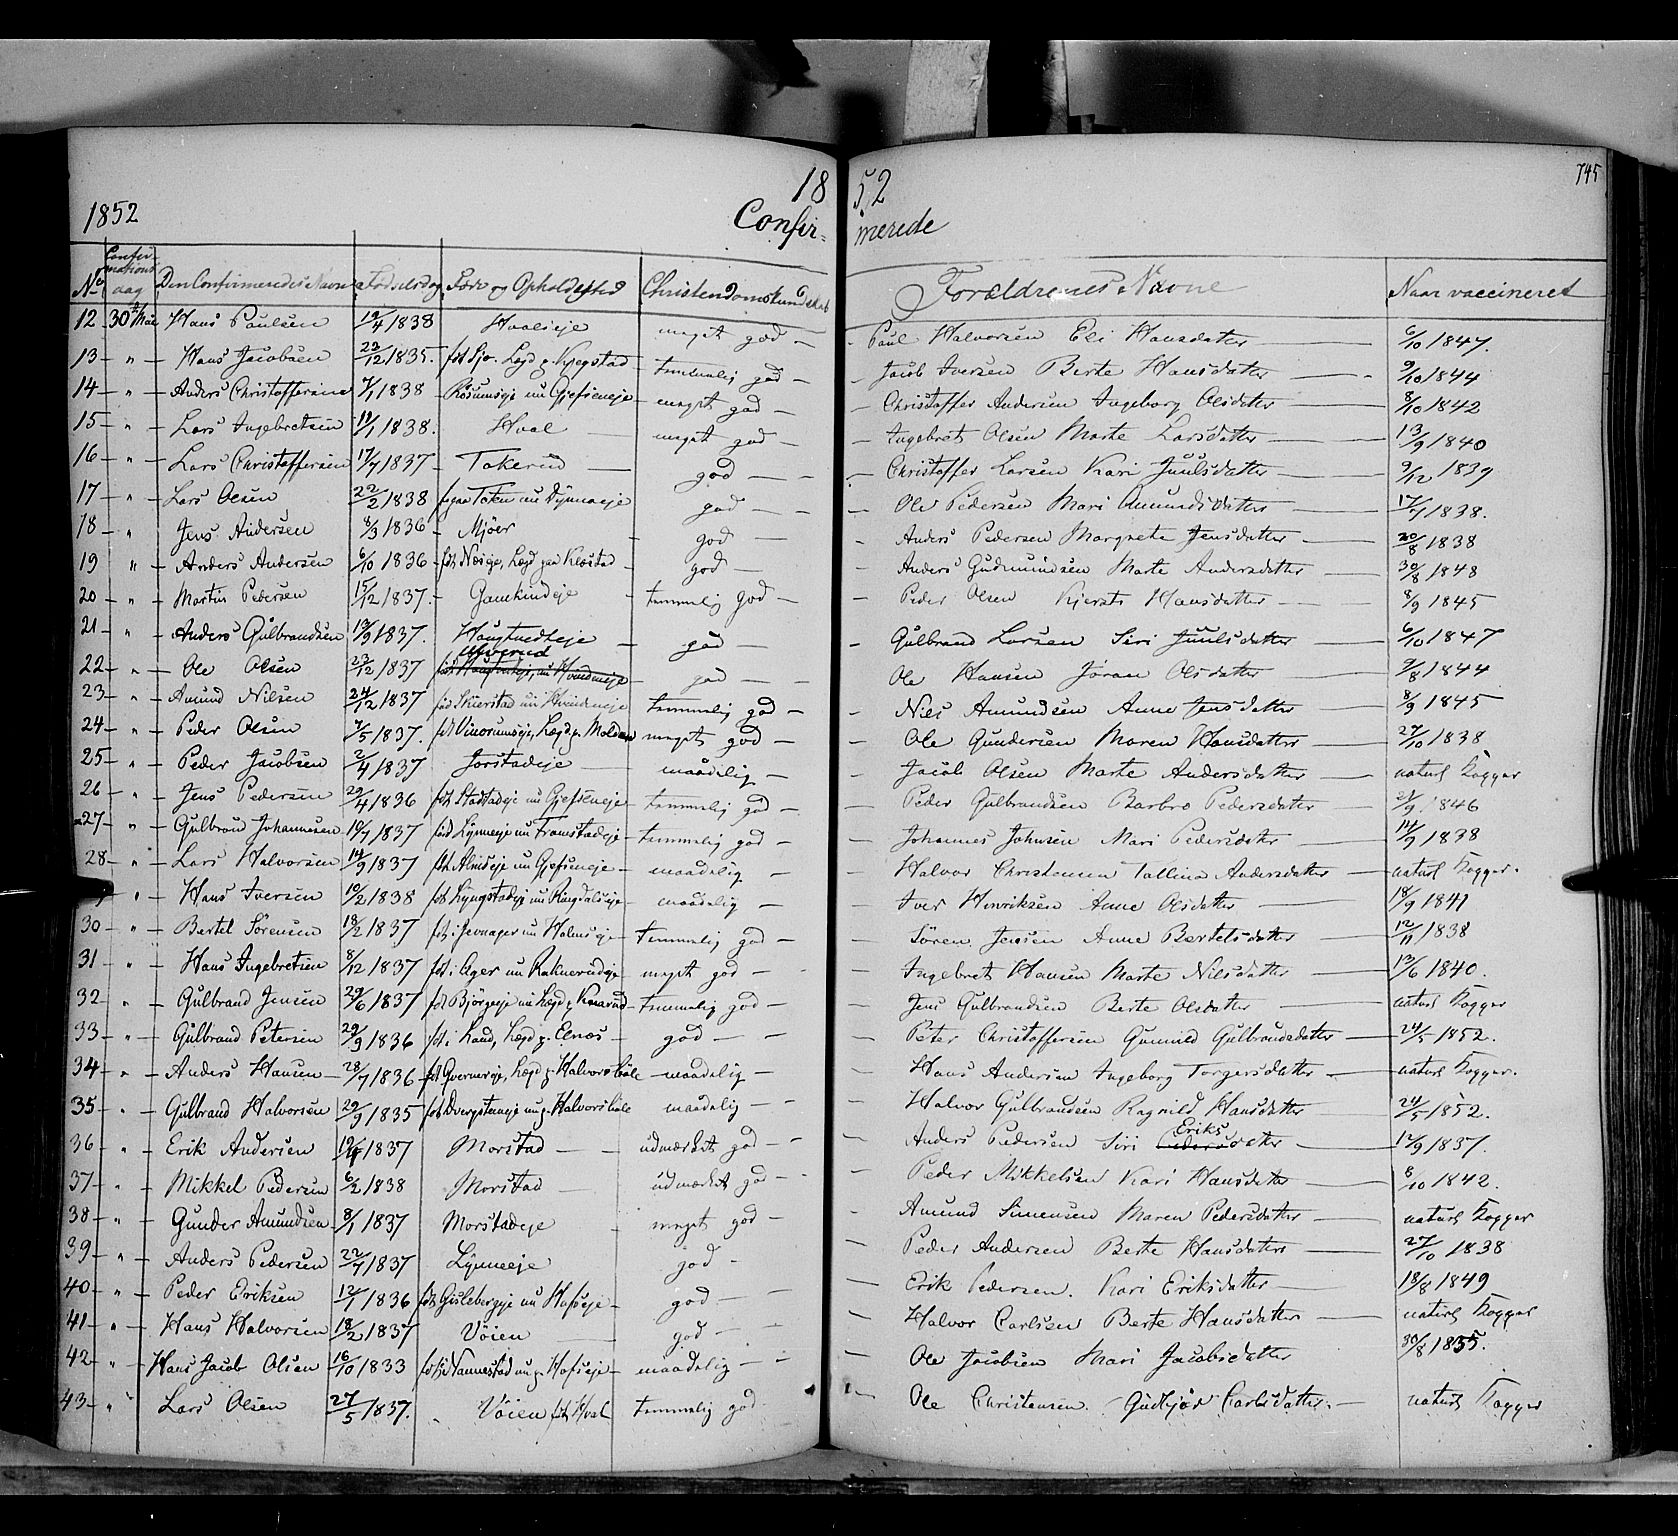 18 52
745
1852 Confir- merede
No Confirmations Dag Den Confirmeredes Navn Fødselsdag Føde og Opholdssted Christendomskundskab Forældrenes Navne Naar vaccineret
12 30te Mai Hans Paulsen 19/4 1838 Hvalseje meget god Paul Halvorsen Eli Hansdatter 6/10 1847.
13 " Hans Jacobsen 22/12 1835. temmelig god Jacob Iversen Berte Hansdatter 9/10 1844
14 " Anders Christoffersen 7/1 1838 nu Gjefseneje meget god Christoffer Andersen Ingeborg Olsdatter 8/10 1842
15 " Lars Ingebretsen 11/1 1838. Hval meget god Ingebret Olsen Marte Larsdatter 13/9 1840
16 " Lars Christoffersen 17/7 1837 Tokerud god Christoffer Larsen Kari Juulsdatter 9/12 1839
17 " Lars Olsen 22/2 1838 god Ole Pedersen Mari Amundsdatter 17/7 1838.
18 " Jens Andersen 8/3 1836 Mjöer god Anders Pedersen Margrete Jensdatter 20/8 1838
19 " Anders Andersen 6/10 1836 god Anders Gudmundsen Marte Andersdatter 30/8 1848
20 " Martin Pedersen 15/12 1837. Gamkindeje temmelig god Peder Olsen Kjersti Hansdatter 8/9 1845
21 " Anders Gulbrandsen 13/9 1837. Haugtvedteje god Gulbrand Larsen Siri Juulsdatter 6/10 1847
22 " Ole Olsen 23/12 1837 god Ole Hansen Jöran Olsdatter 7/8 1844
23 " Amund Nilsen 24/12 1837 temmelig god Niels Amundsen Anne Jensdatter 8/9 1845
24 " Peder Olsen 7/5 1837. meget god Ole Gundersen Maren Hansdatter 27/10 1838
25 " Peder Jacobsen 2/4 1837 Jorstadeje maadelig Jacob Olsen Marte Andersdatter naturl Kogger
26 " Jens Pedersen 29/4 1836 nu Gjefseneje temmelig god Peder Gulbrandsen Barbro Pedersdatter 21/9 1846
27 " Gulbrand Johannesen 10/7 1837 født Lynneeje nu Tronstadeje temmelig god Johannes Johnsen Mari Pedersdatter 14/9 1838
28 " Lars Halvorsen 14/9 1837 nu Gjefseneje maadelig Halvor Christensen Tolline Andersdatter naturl Kogger.
" Hans Iversen 10/2 1838 maadelig Iver Henriksen Anne Olsdatter 18/9 1841
30 " Bertel Sörensen 18/2 1837 föt i Jevnager nu Holmseje temmelig god Sören Jensen Anne Bertelsdatter 12/11 1838
31 " Hans Ingebretsen 8/12 1837 föt i Ager nu meget god Ingebret Hansen Marte Nilsdatter 13/6 1840.
32 " Gulbrand Jensen 29/6 1837 temmelig god Jens Gulbrandsen Berte Olsdatter naturl Kogger
33 " Gulbrand Petersen 29/9 1836 föt i Land, Lægd p. Elnæs god Peter Christoffersen Gunnild Gulbrandsdatter 24/5 1852.
34 " Anders Hansen 28/7 1836 maadelig Hans Andersen Ingeborg Torgersdatter naturl Kogger.
35 " Gulbrand Halvorsen 29/9 1835 maadelig Halvor Gulbrandsen Ragnild Hansdatter 24/5 1852.
36 " Erik Andersen 1837 Morstad udmærket god Anders Pedersen Siri Eriksdatter 12/9 1837.
37 " Mikkel Pedersen 6/2 1838 Morstad udmærket god Peder Mikkelsen Kari Hansdatter 8/10 1842.
38 " Gunder Amundsen 8/1 1837 Morstadeje meget god Amund Simensen Maren Pedersdatter naturl Kogger
39 " Anders Pedersen 22/7 1837 Lynneeje god Peder Andersen Berte Hansdatter 27/10 1838
40 " Peder Eriksen 12/1 1836 föt Gislebergeje nu Hofseje god Erik Pedersen. Kari Eriksdatter 18/8 1849
41 " Hans Halvorsen 18/2 1837 Vöien god Halvor Carlsen Berte Hansdatter naturl Kogger
42 " Hans Jacob Olsen 16/10 1833 maadelig Ole Jacobsen Mari Jacobsdatter 30/8 1835.
43 " Lars Olsen 27/5 1837. Vöien föt Hval temmelig god Ole Christensen. Gudbjör Carlsdatter. naturl Kogger